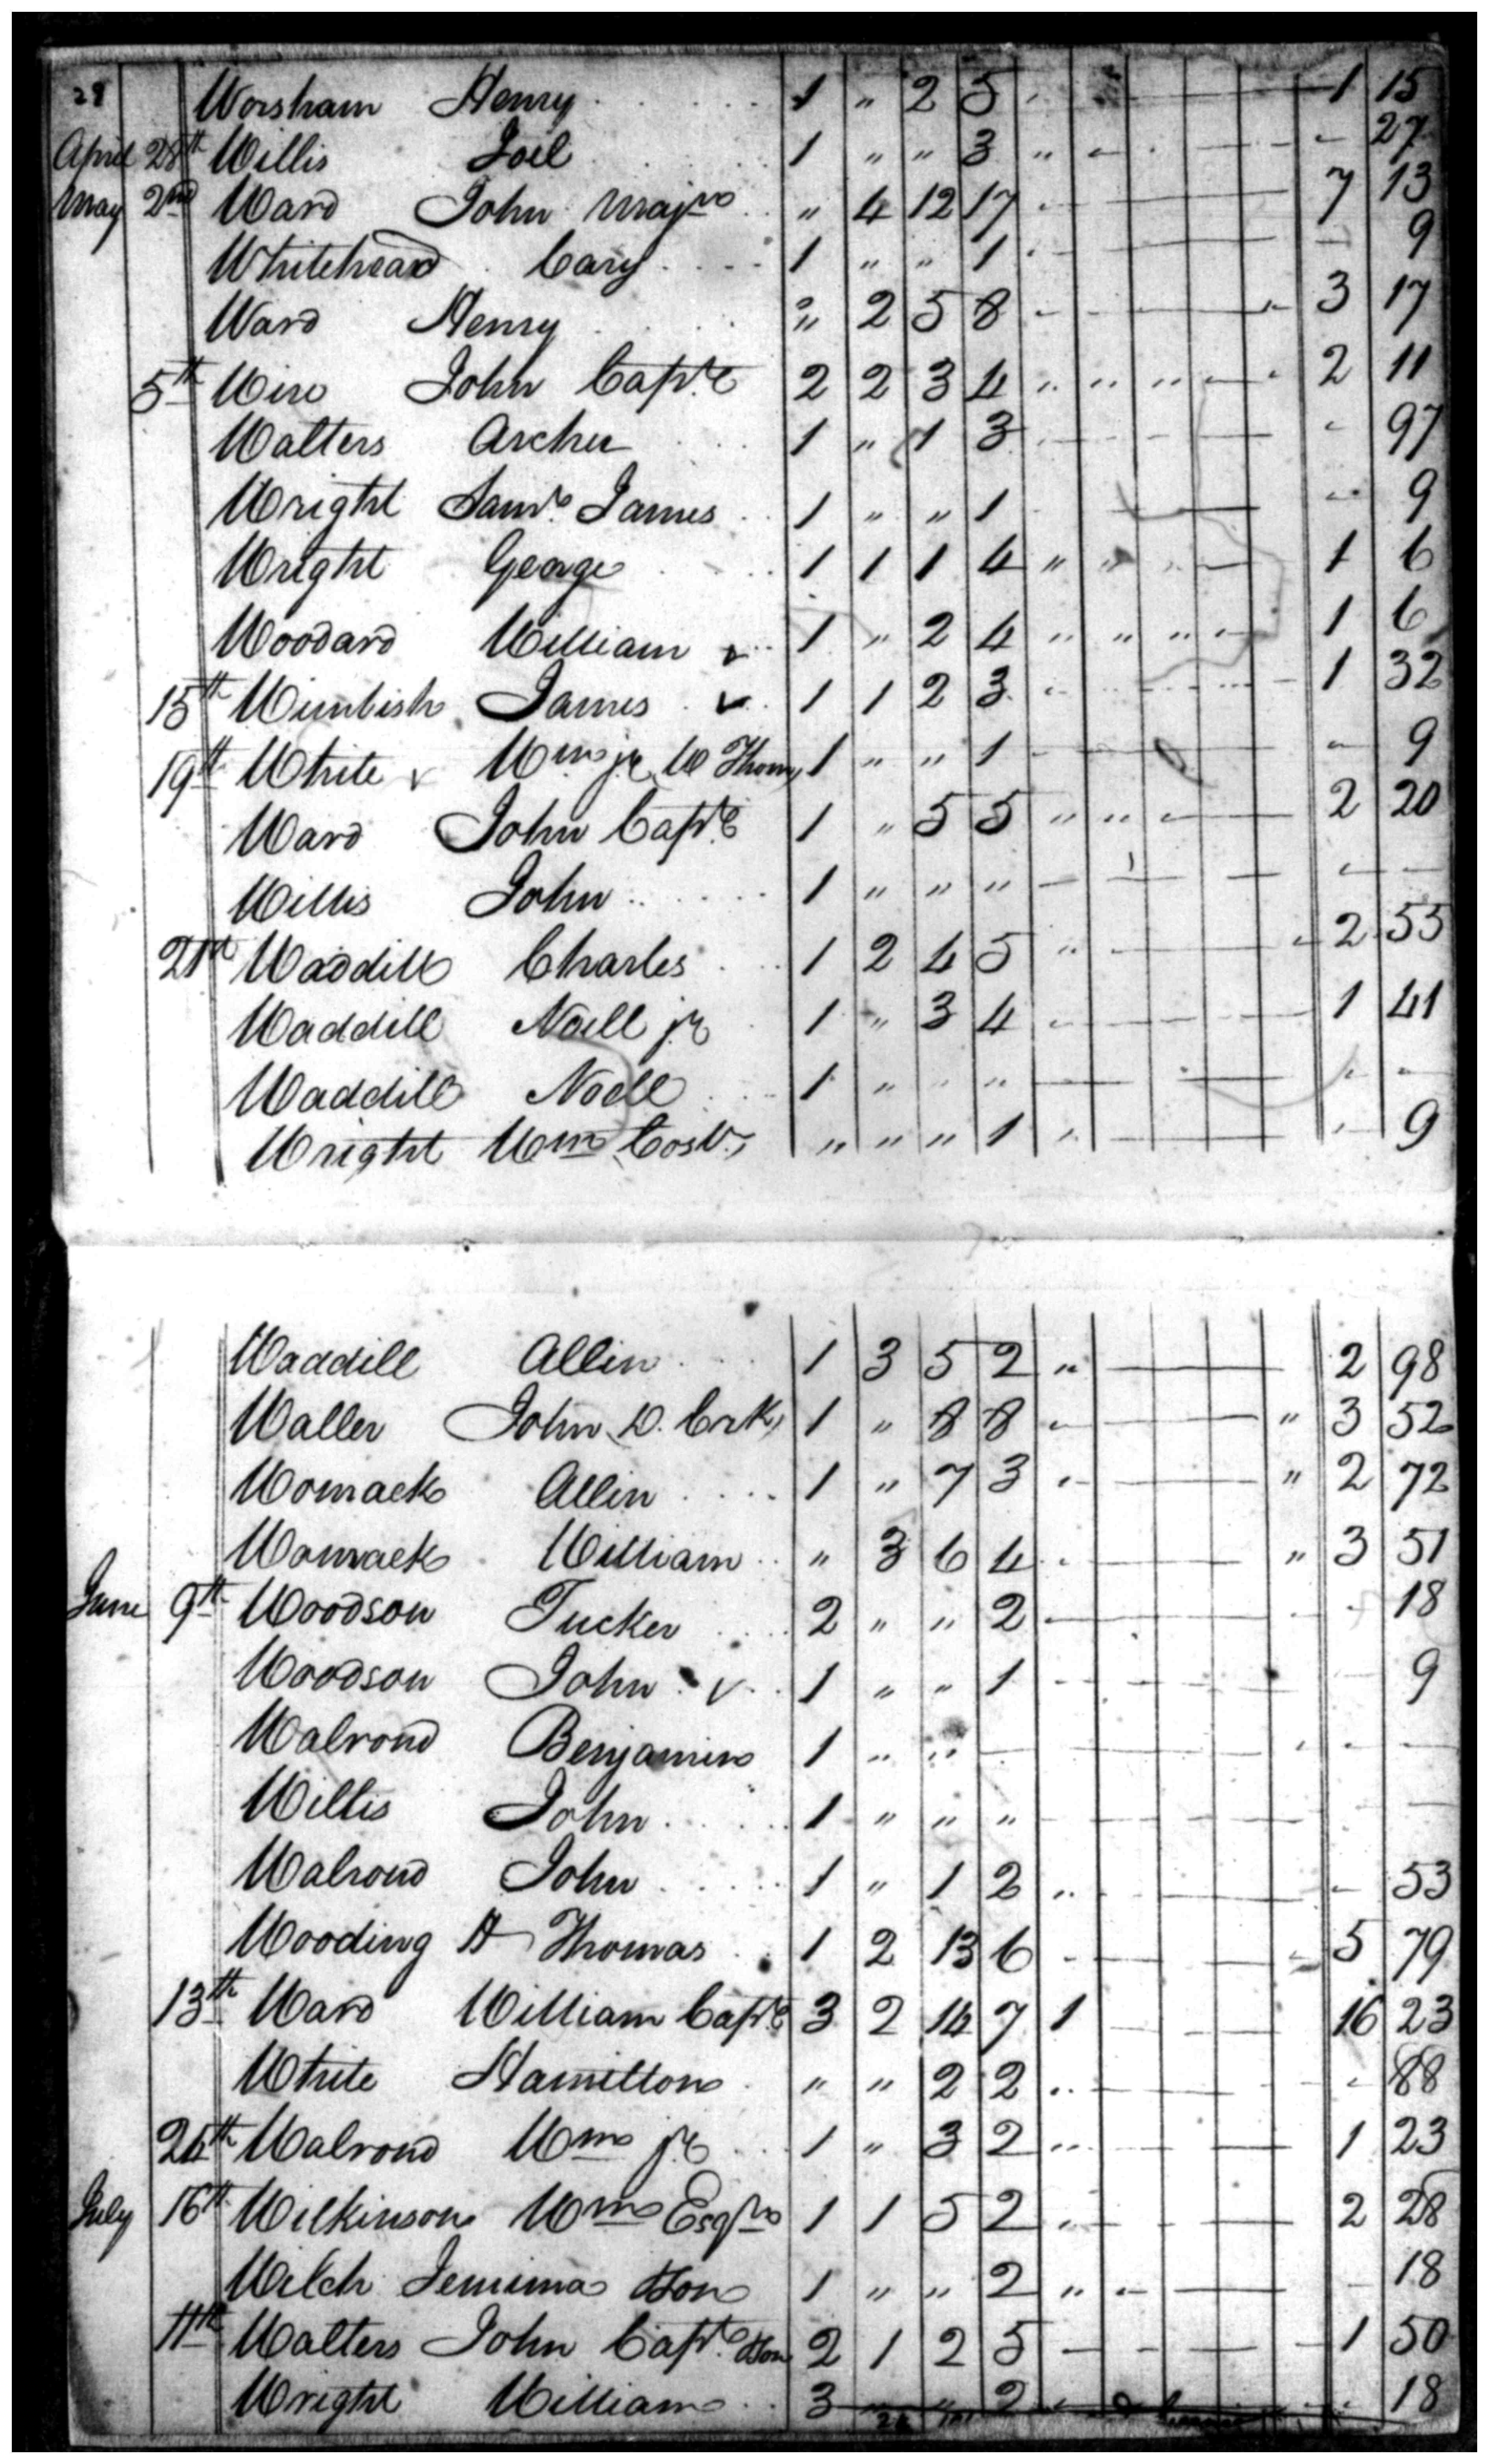 29 Worsham Henry 1 " 2 5 1 15
April 28th Willis Joel 1 " " 3 " 27
May 2nd Ward John Majro " 4 12 17 7 13
Whitehead Cary 1 " " 1 9
Ward Henry " 2 5 8 3 17
5th Wire John Capt. 2 2 3 4 " " " 2 11
Walters Archer 1 " 1 3 97
Wright Saml. James 1 " " 1 9
Wright George 1 1 1 4 " " 1 6
Woodard William 1 " 2 4 " " " 1 6
15th Wimbish James 1 1 2 3 1 32
19th White Wm jr W Thom 1 " " 1 9
Ward John Capt. 1 " 5 5 " " 2 20
Willis John 1 " " "
21st Waddill Charles 1 2 4 5 " 2 55
Waddill Noell jr 1 " 3 4 1 41
Waddill Noell 1 " " "
Wright Wm " " " 1 9
Waddill Allin 1 3 5 2 " 2 98
Waller John D. Crk, 1 " 8 8 " 3 52
Womack Allin 1 " 7 3 " 2 72
Womack William " 3 6 4 " 3 51
June 9th Woodson Tucker 2 " " 2 18
Woodson John 1 " " 1 9
Walrond Benjamin 1 " "
Willis John 1 " " "
Walrond John 1 " 1 2 " 53
Wooding H Thomas 1 2 13 6 5 79
13th Ward William Capt. 3 2 14 7 1 16 23
White Hamilton " " 2 2 " 88
24th Walrond Wm jr 1 " 3 2 " 1 23
July 16th Wilkinson Wm Esqr 1 1 5 2 2 28
Welch Jemima Son 1 " " 2 " 18
11th Walters John Capt. Son 2 1 2 5 1 50
Wright William 3 " " 2 18